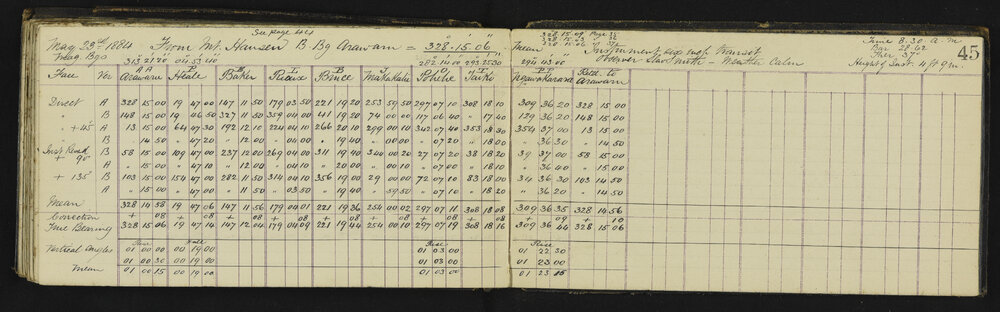 See page 44
328.15.09 Page 32
328.15.03
328.15.06
Time 8.30 A.M
Bar 28.62
Ther 37°
Height of Inst. 4 ft 9 in.
45
May 23rd 1884 From Mt. Hansen B Bg Arawaru = 328.15.06
Mean
Observer - Weather Calm
Mag Bgs 313 21 20 04 53 40 282 14 00 293 25 30 294 43 00
Face Ver Arawaru Heale Baker Bruce Pohue Taiko Ngawakarara Retd. to Arawaru
Direct A 328 15 00 19 47 00 147 11 50 179 03 50 221 19 20 253 59 50 297 07 10 308 18 10 309 36 20 328 15 00
" B 148 15 00 19 46 50 327 11 50 359 04 00 41 19 20 74 00 00 117 06 40 " 17 40 129 36 20 148 15 00
" +45° A 13 15 00 64 47 30 192 12 10 224 04 10 266 20 10 299 00 10 342 07 40 353 18 30 354 37 00 13 15 00
" B " 14 50 " 47 20 " 12 00 " 04 00 " 19 40 " 00 00 " 07 20 " 18 00 " 36 30 " 14 50
+ 90° B 58 15 00 109 47 00 237 12 00 269 04 00 311 19 40 344 00 20 27 07 20 38 18 20 39 37 00 58 15 00
A " 15 00 " 47 10 " 12 00 " 04 10 " 20 00 " 00 10 " 07 00 " 18 10 " 36 00 " 15 00
+ 135° B 103 15 00 154 47 00 282 11 50 314 04 10 356 19 00 29 00 00 72 07 10 83 18 00 84 36 30 103 14 50
A " 15 00 " 47 00 " 11 50 " 03 50 " 19 40 " 59 50 " 07 10 " 18 20 " 36 20 " 14 50
Mean 328 14 58 19 47 06 147 11 56 179 04 01 221 19 36 254 00 02 297 07 11 308 18 08 309 36 35 328 14 56
Correction + 08 + 08 + 08 + 08 + 08 + 08 + 08 + 08 + 09 + 10
True Bearing 328 15 06 19 47 14 147 12 04 179 04 09 221 19 44 254 00 10 297 07 19 308 18 16 309 36 44 328 15 06
Rise Fall Rise Rise
Vertical Angles 01 00 00 00 19 00 01 03 00 01 22 30
01 00 30 00 19 00 01 03 00 01 23 00
Mean 01 00 15 00 19 00 01 03 00 01 23 15